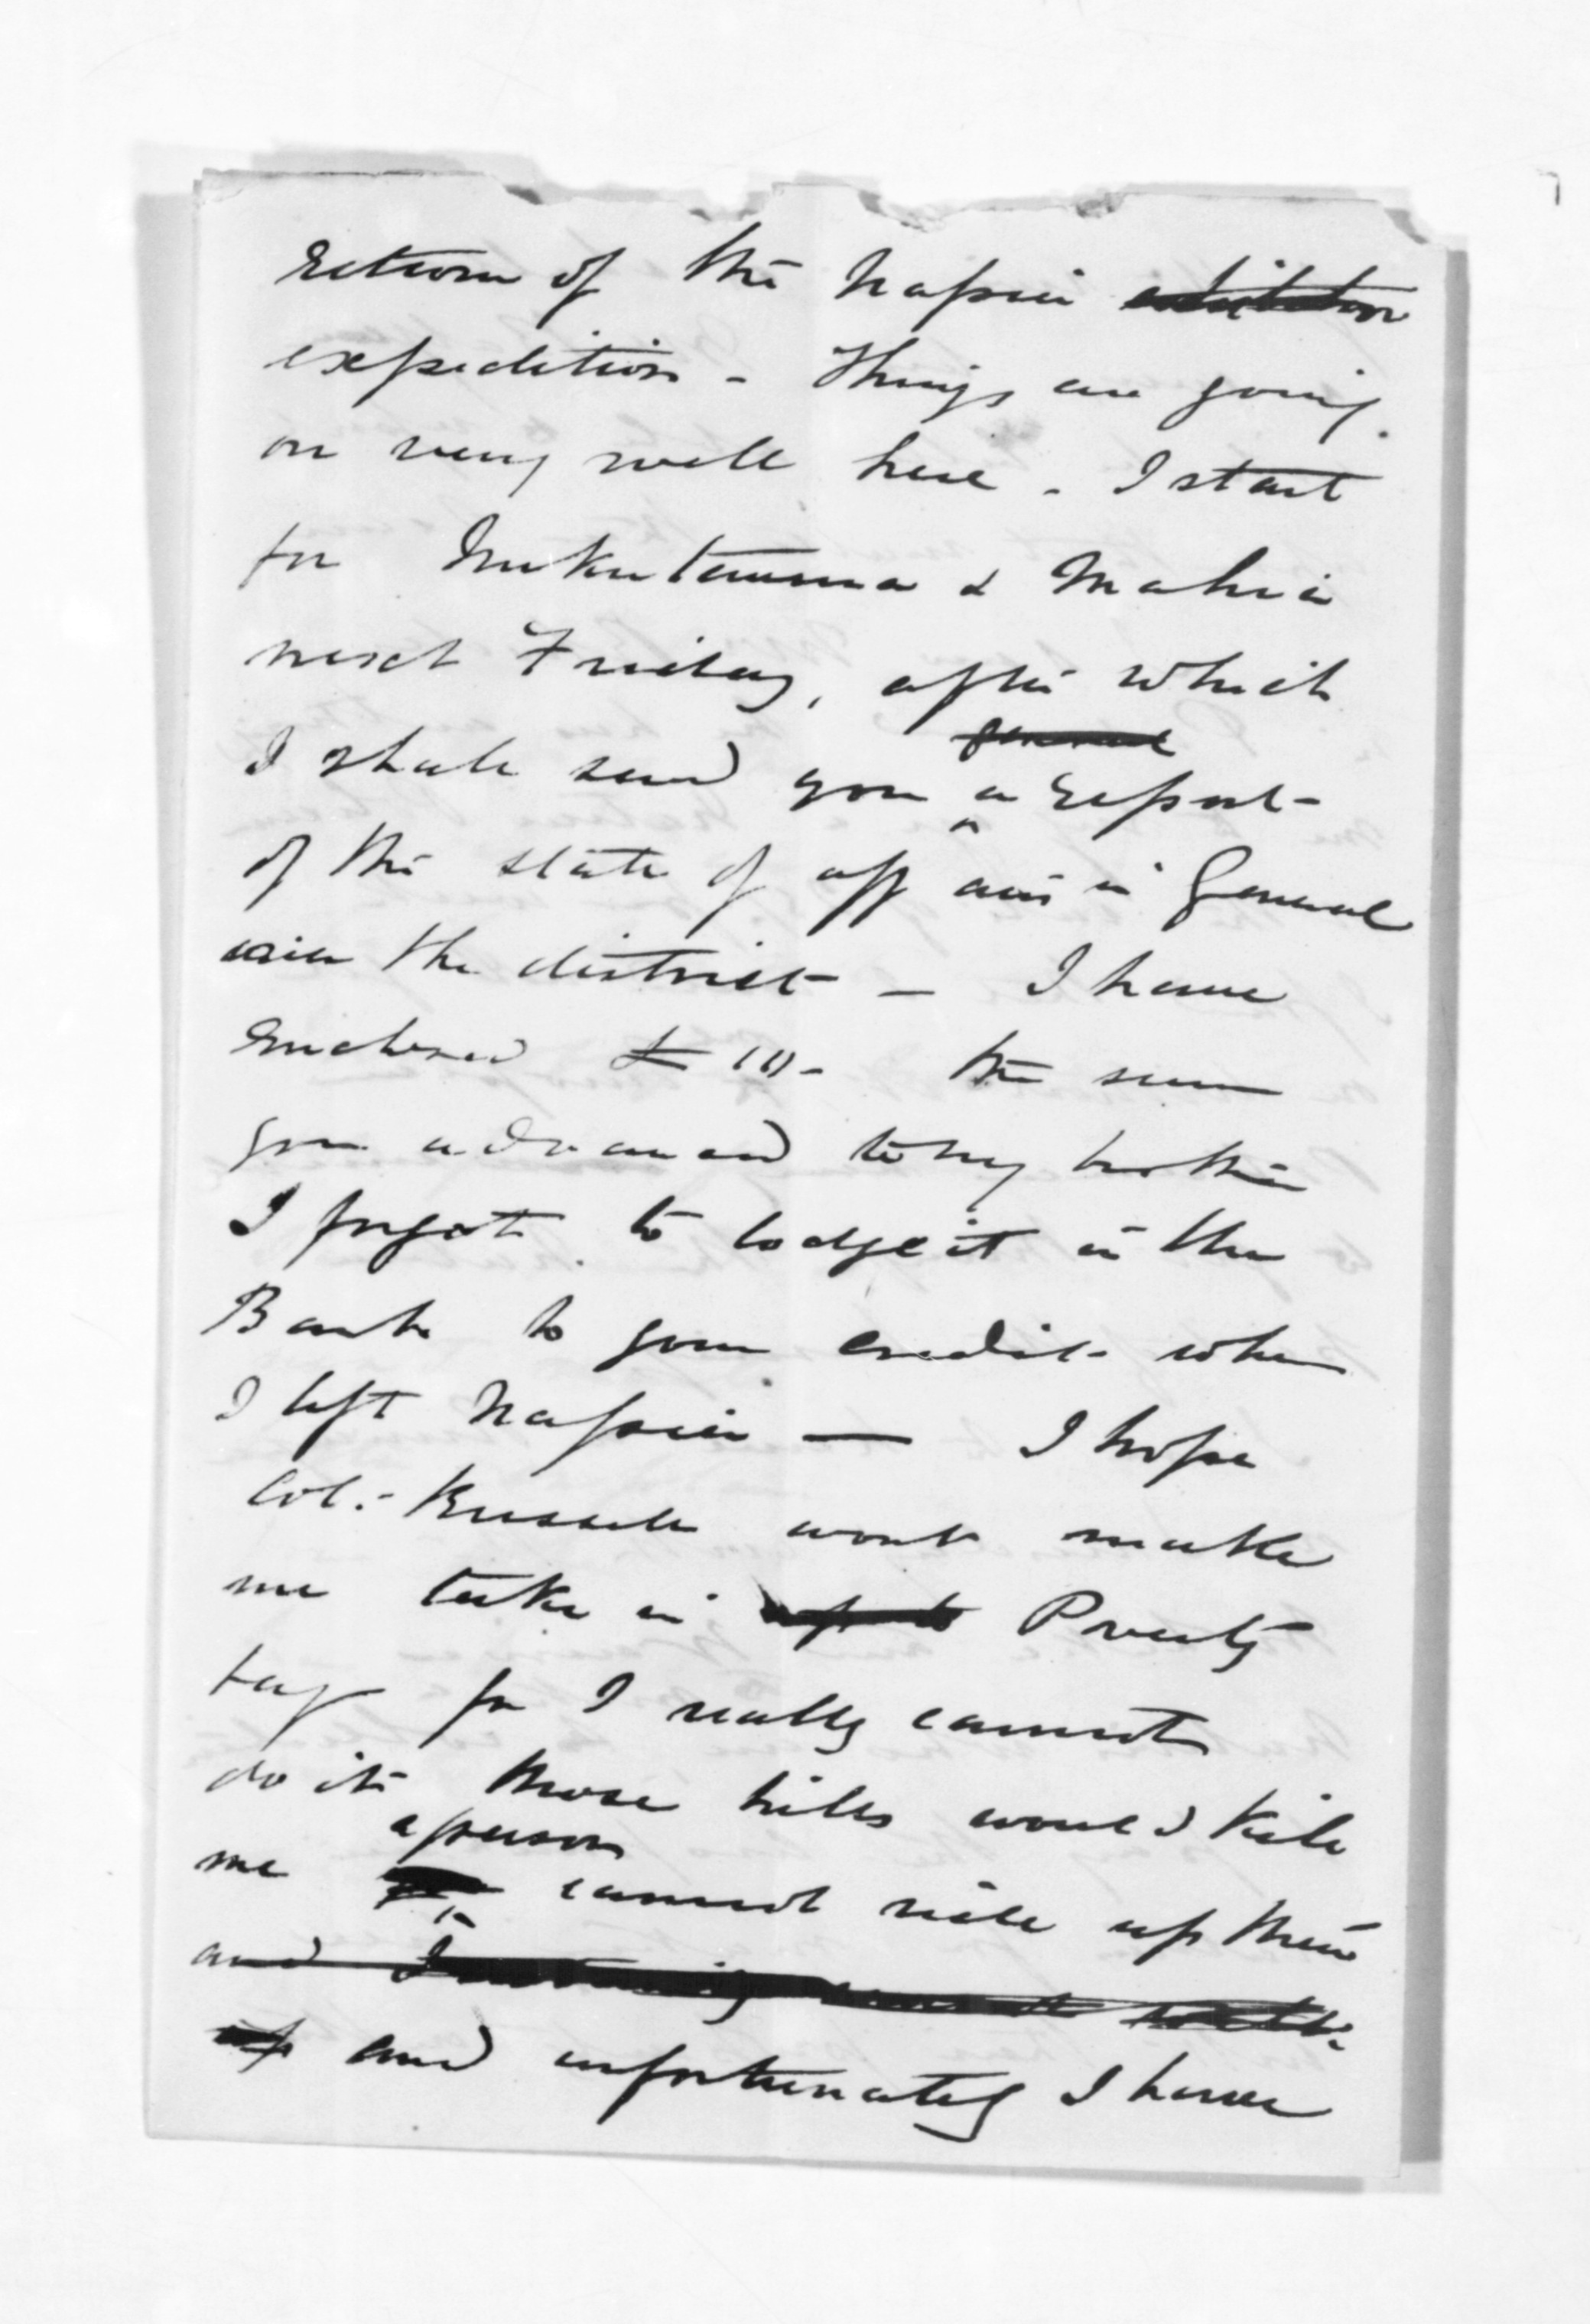 return of the Napier
expedition - Things are going
on very well here - I start
for Nukutaurua & Mahia
next Friday, after which
general
I shall send you a report
of the state of affairs in General
in the district - I have
Enclosed £ the sum
you advanced to my brother
I forgot to lodge it in the
Bank to your credit when
I left Napier — I hope
Col. Russell wont make
me take in Poverty
bay for I really cannot
do it those hills would kill
a person
me cannot ride up them
and I
up and unfortunately I have